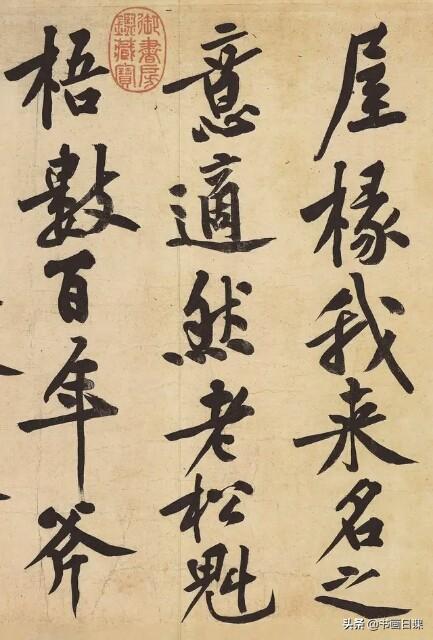 屋椽我来名之
意適然老松魁
梧數百年斧
御書房鑑藏寶
头条@书画日课